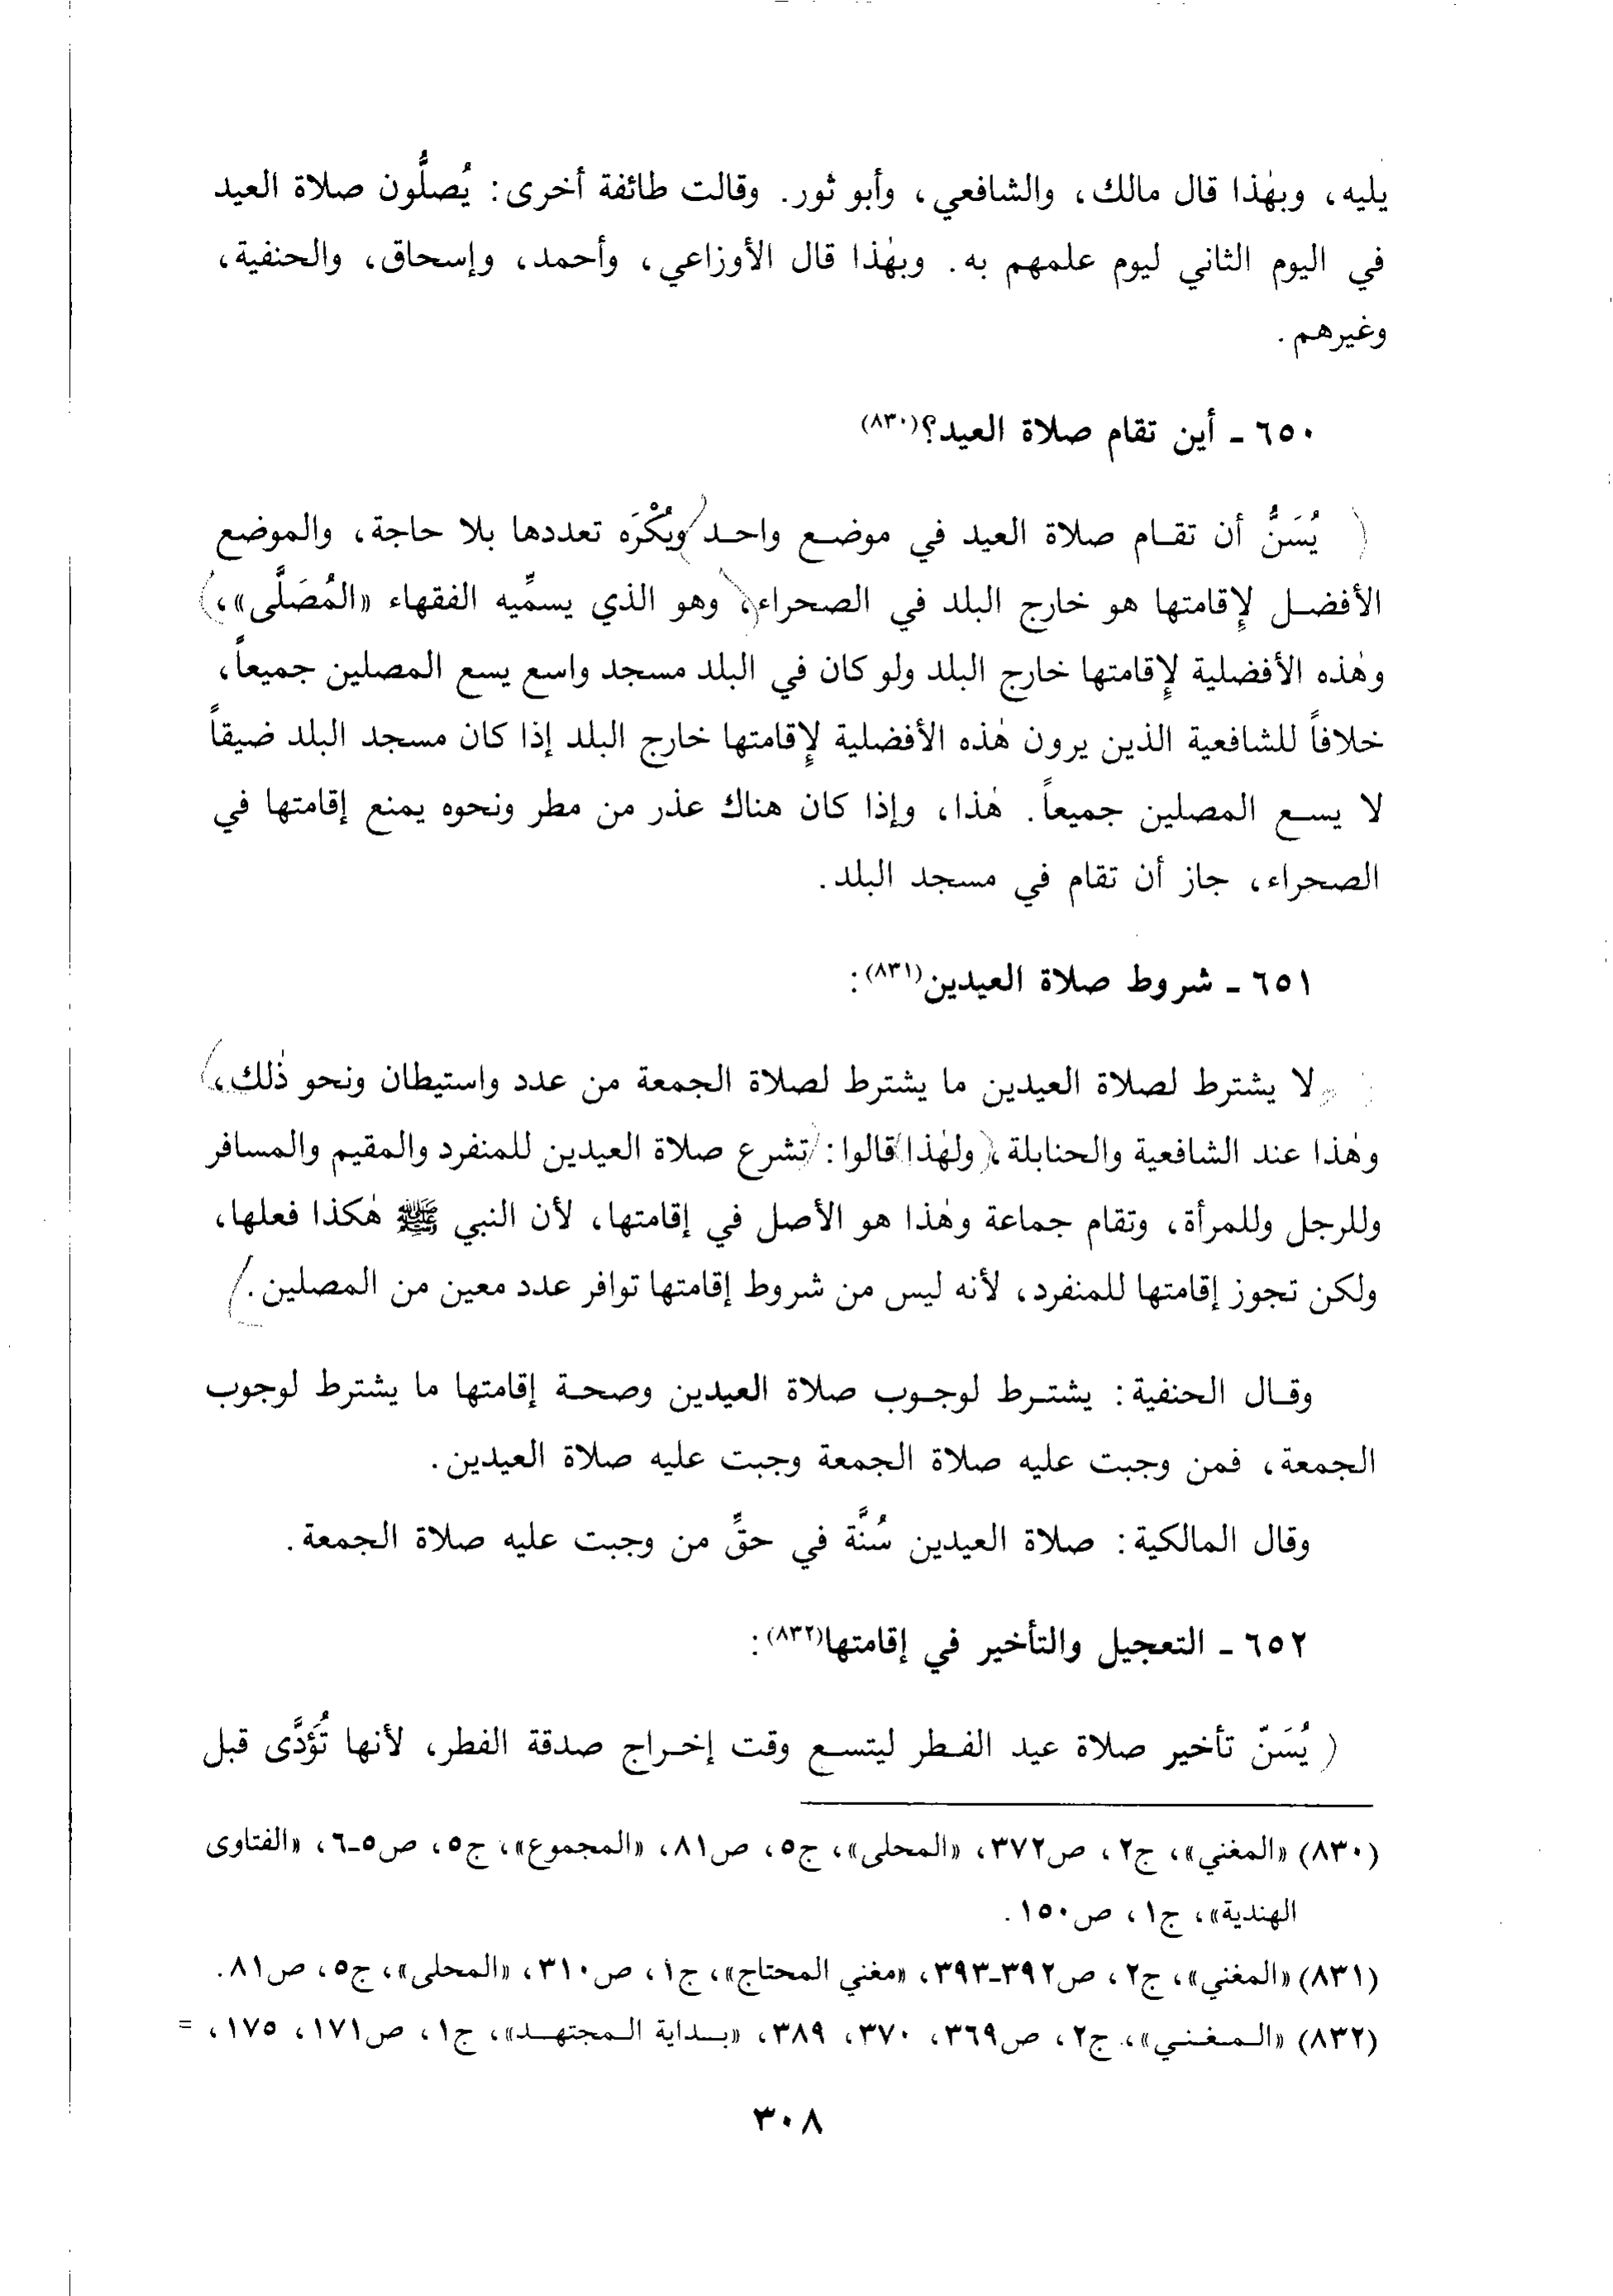 يليه، وبهٰذا قال مالك، والشافعي، وأبو ثور. وقالت طائفة أخرى: يُصلُّون صلاة العيد
في اليوم الثاني ليوم علمهم به. وبهٰذا قال الأوزاعي، وأحمد، وإسحاق، والحنفية،
وغيرهم.
٦٥٠ - أين تقام صلاة العيد؟(٨٣٠)
( يُسَنُّ أن تقام صلاة العيد في موضع واحد/ويُكْرَه تعددها بلا حاجة، والموضع
الأفضل لإِقامتها هو خارج البلد في الصحراء، وهو الذي يسمِّيه الفقهاء «المُصَلَّى»،)
وهٰذه الأفضلية لإِقامتها خارج البلد ولو كان في البلد مسجد واسع يسع المصلين جميعاً،
خلافاً للشافعية الذين يرون هٰذه الأفضلية لإِقامتها خارج البلد إذا كان مسجد البلد ضيقاً
لا يسع المصلين جميعاً. هٰذا، وإذا كان هناك عذر من مطر ونحوه يمنع إقامتها في
الصحراء، جاز أن تقام في مسجد البلد.
٦٥١ - شروط صلاة العيدين(٨٣١):
لا يشترط لصلاة العيدين ما يشترط لصلاة الجمعة من عدد واستيطان ونحو ذٰلك،)
وهٰذا عند الشافعية والحنابلة، ولهٰذا قالوا: تشرع صلاة العيدين للمنفرد والمقيم والمسافر
وللرجل وللمرأة، وتقام جماعة وهٰذا هو الأصل في إقامتها، لأن النبي ﷺ هٰكذا فعلها،
ولكن تجوز إقامتها للمنفرد، لأنه ليس من شروط إقامتها توافر عدد معين من المصلين./
وقال الحنفية: يشترط لوجوب صلاة العيدين وصحة إقامتها ما يشترط لوجوب
الجمعة، فمن وجبت عليه صلاة الجمعة وجبت عليه صلاة العيدين.
وقال المالكية: صلاة العيدين سُنَّة في حقِّ من وجبت عليه صلاة الجمعة.
٦٥٢ - التعجيل والتأخير في إقامتها(٨٣٢):
( يُسَنّ تأخير صلاة عيد الفطر ليتسع وقت إخراج صدقة الفطر، لأنها تُؤدَّى قبل
(٨٣٠) «المغني»، ج٢، ص٣٧٢، «المحلى»، ج٥، ص٨١، «المجموع»، ج٥، ص٥-٦، «الفتاوى
الهندية»، ج١، ص١٥٠.
(٨٣١) «المغني»، ج٢، ص٣٩٢-٣٩٣، «مغني المحتاج»، ج١، ص٣١٠، «المحلى»، ج٥، ص٨١.
(٨٣٢) «المغني»، ج٢، ص٣٦٩، ٣٧٠، ٣٨٩، «بداية المجتهد»، ج١، ص١٧١، ١٧٥، =
٣٠٨